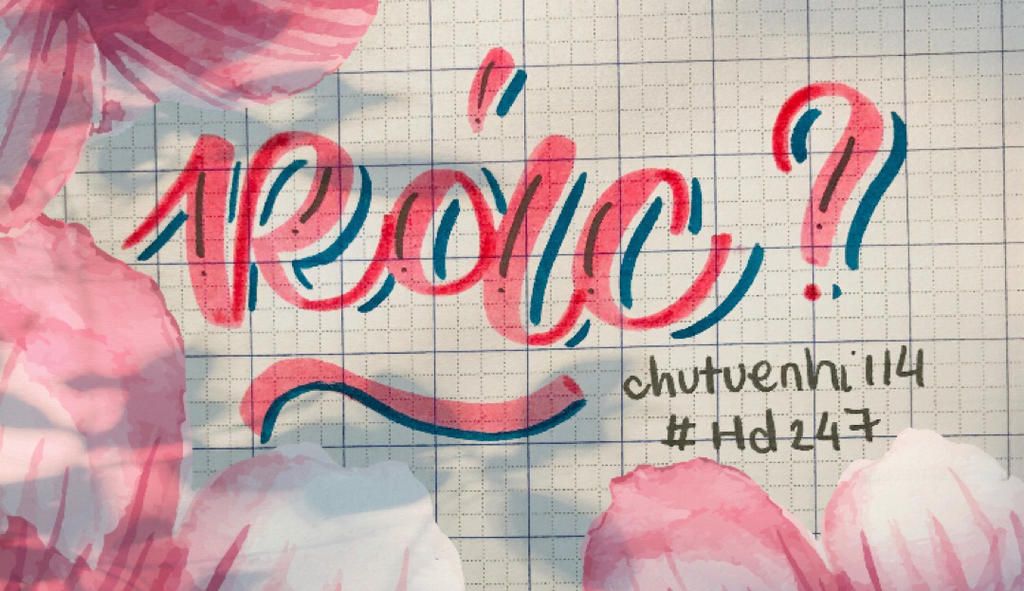 Roic ?
chutuenhi114
#Hd247